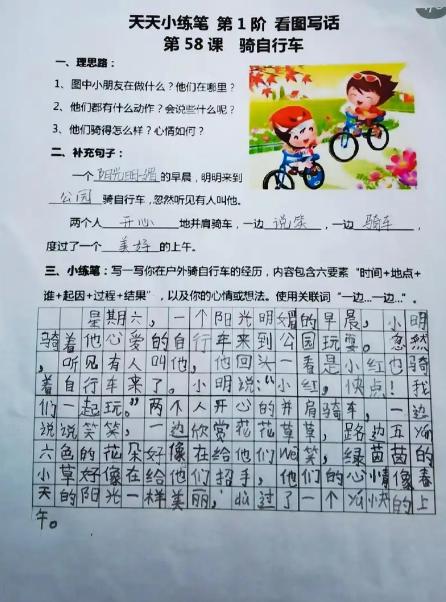 天天小练笔 第1阶 看图写话
第58课 骑自行车
一、理思路：
1、图中小朋友在做什么？他们在哪里？
2、他们都有什么动作？会说些什么呢？
3、他们骑得怎么样？心情如何？
二、补充句子：
一个阳光明媚的早晨，明明来到
公园骑自行车，忽然听见有人叫他。
两个人开心地并肩骑车，一边说笑，一边骑车，
度过了一个美好的上午。
三、小练笔：写一写你在户外骑自行车的经历，内容包含六要素“时间+地点+
谁+起因+过程+结果”，以及你的心情或想法。使用关联词“一边…一边…”。
星期六，一个阳光明媚的早晨，小明
骑着他心爱的自行车来到公园玩耍。忽然
，听见有人叫他，他回头一看是小红也骑
着自行车来了。小明说：“小红，快点！我
们一起玩。”两个人开心的并肩骑车，一边
说说笑笑，一边欣赏花花草草，路边五颜
六色的花朵好像在给他们wēi笑，绿茵茵的
小草好像在给他们招手，他们的心情像春
天的阳光一样美丽，dù过了一个愉快的上
午。